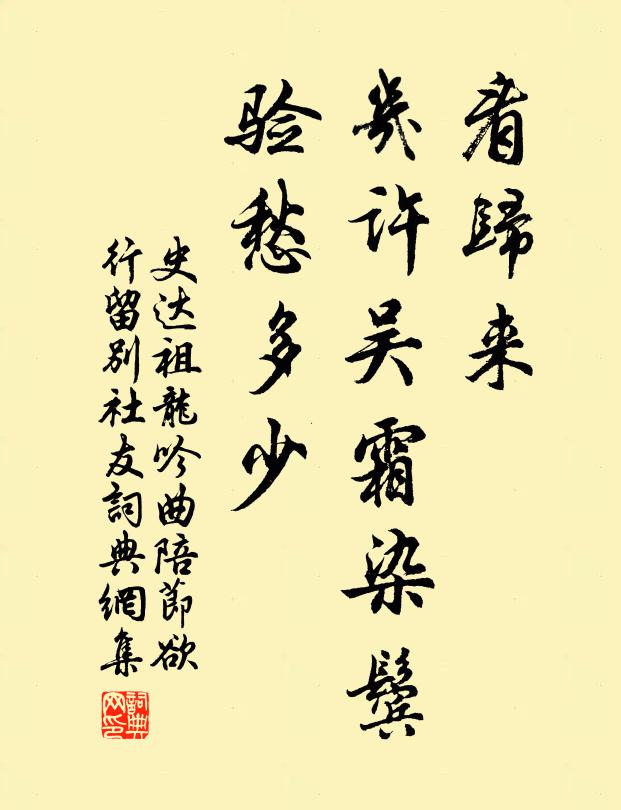 看歸来
幾许吴霜染鬓
验愁多少
史达祖龍吟曲陪節欲
行留别社友詞典網集
詞典网印